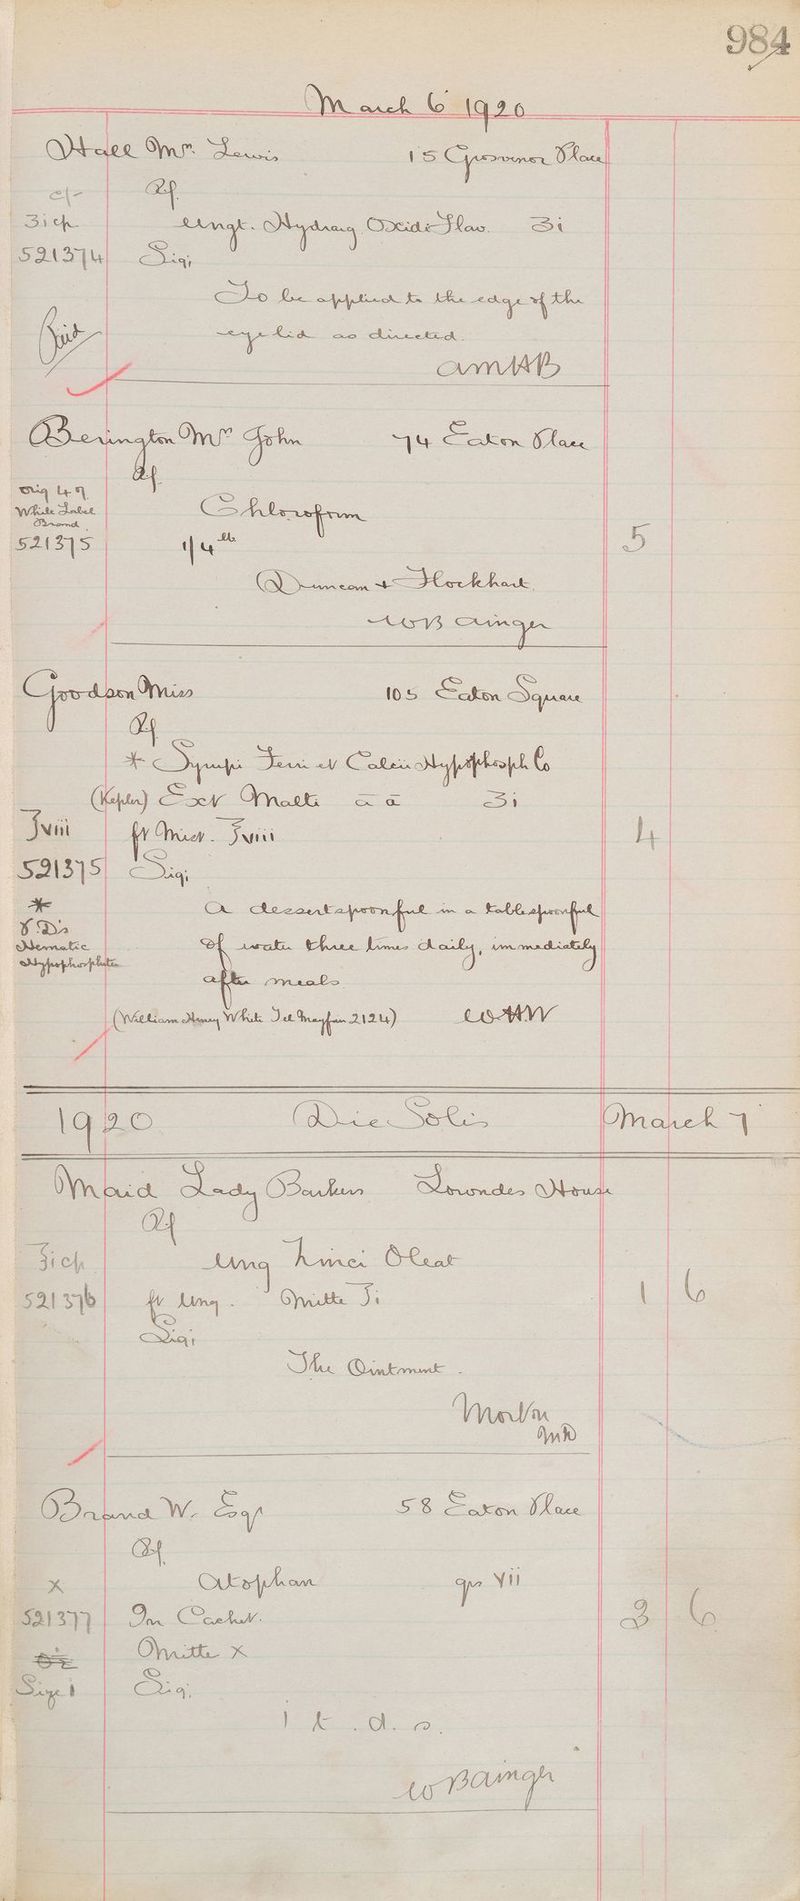 984
March 6 1920
Hall Mrs. Lewis 15 Grosvenor Place
c/-
Rf.
ʒi cp
Ungt. Hydrarg Oxidi Flav. ʒi
521374 Sig;
To be applied to the edge of the
eyelid as directed.
Paid
AMHB
Berington Mrs John 74 Eaton Place
Rf
orig 4 oz
White Label
Brand.
Chloroform
521375 1/4 lb 5
Duncan & Flockhart.
WB Ainger
Goodson Miss 105 Eaton Square
Rf
* Syrupi Ferri et Calcii Hypophosph Co
(Kepler) Ext Malti āā ʒi
℥viii ft Mist. ℥viii 4
521375 Sig;
* A dessertspoonful in a tablespoonful
P.D's
Hematic of water three times daily, immediately
Hypophosphites
after meals
(William Henry White Tel Mayfair 2124) WHW
1920 Die Solis March 7
Maid Lady Barkers Lowndes House
Rf
℥i cp Ung Zinci Oleat
521376 ft Ung. Mitte ℥i 1 6
Sig;
The Ointment.
Morton
MD
Brand W. Esqr 58 Eaton Place
Rf.
x Atophan grs vii
521377 In Cachet. 3 6
Mitte x
Size 1 Sig.
1 t.d.s.
WB Ainger